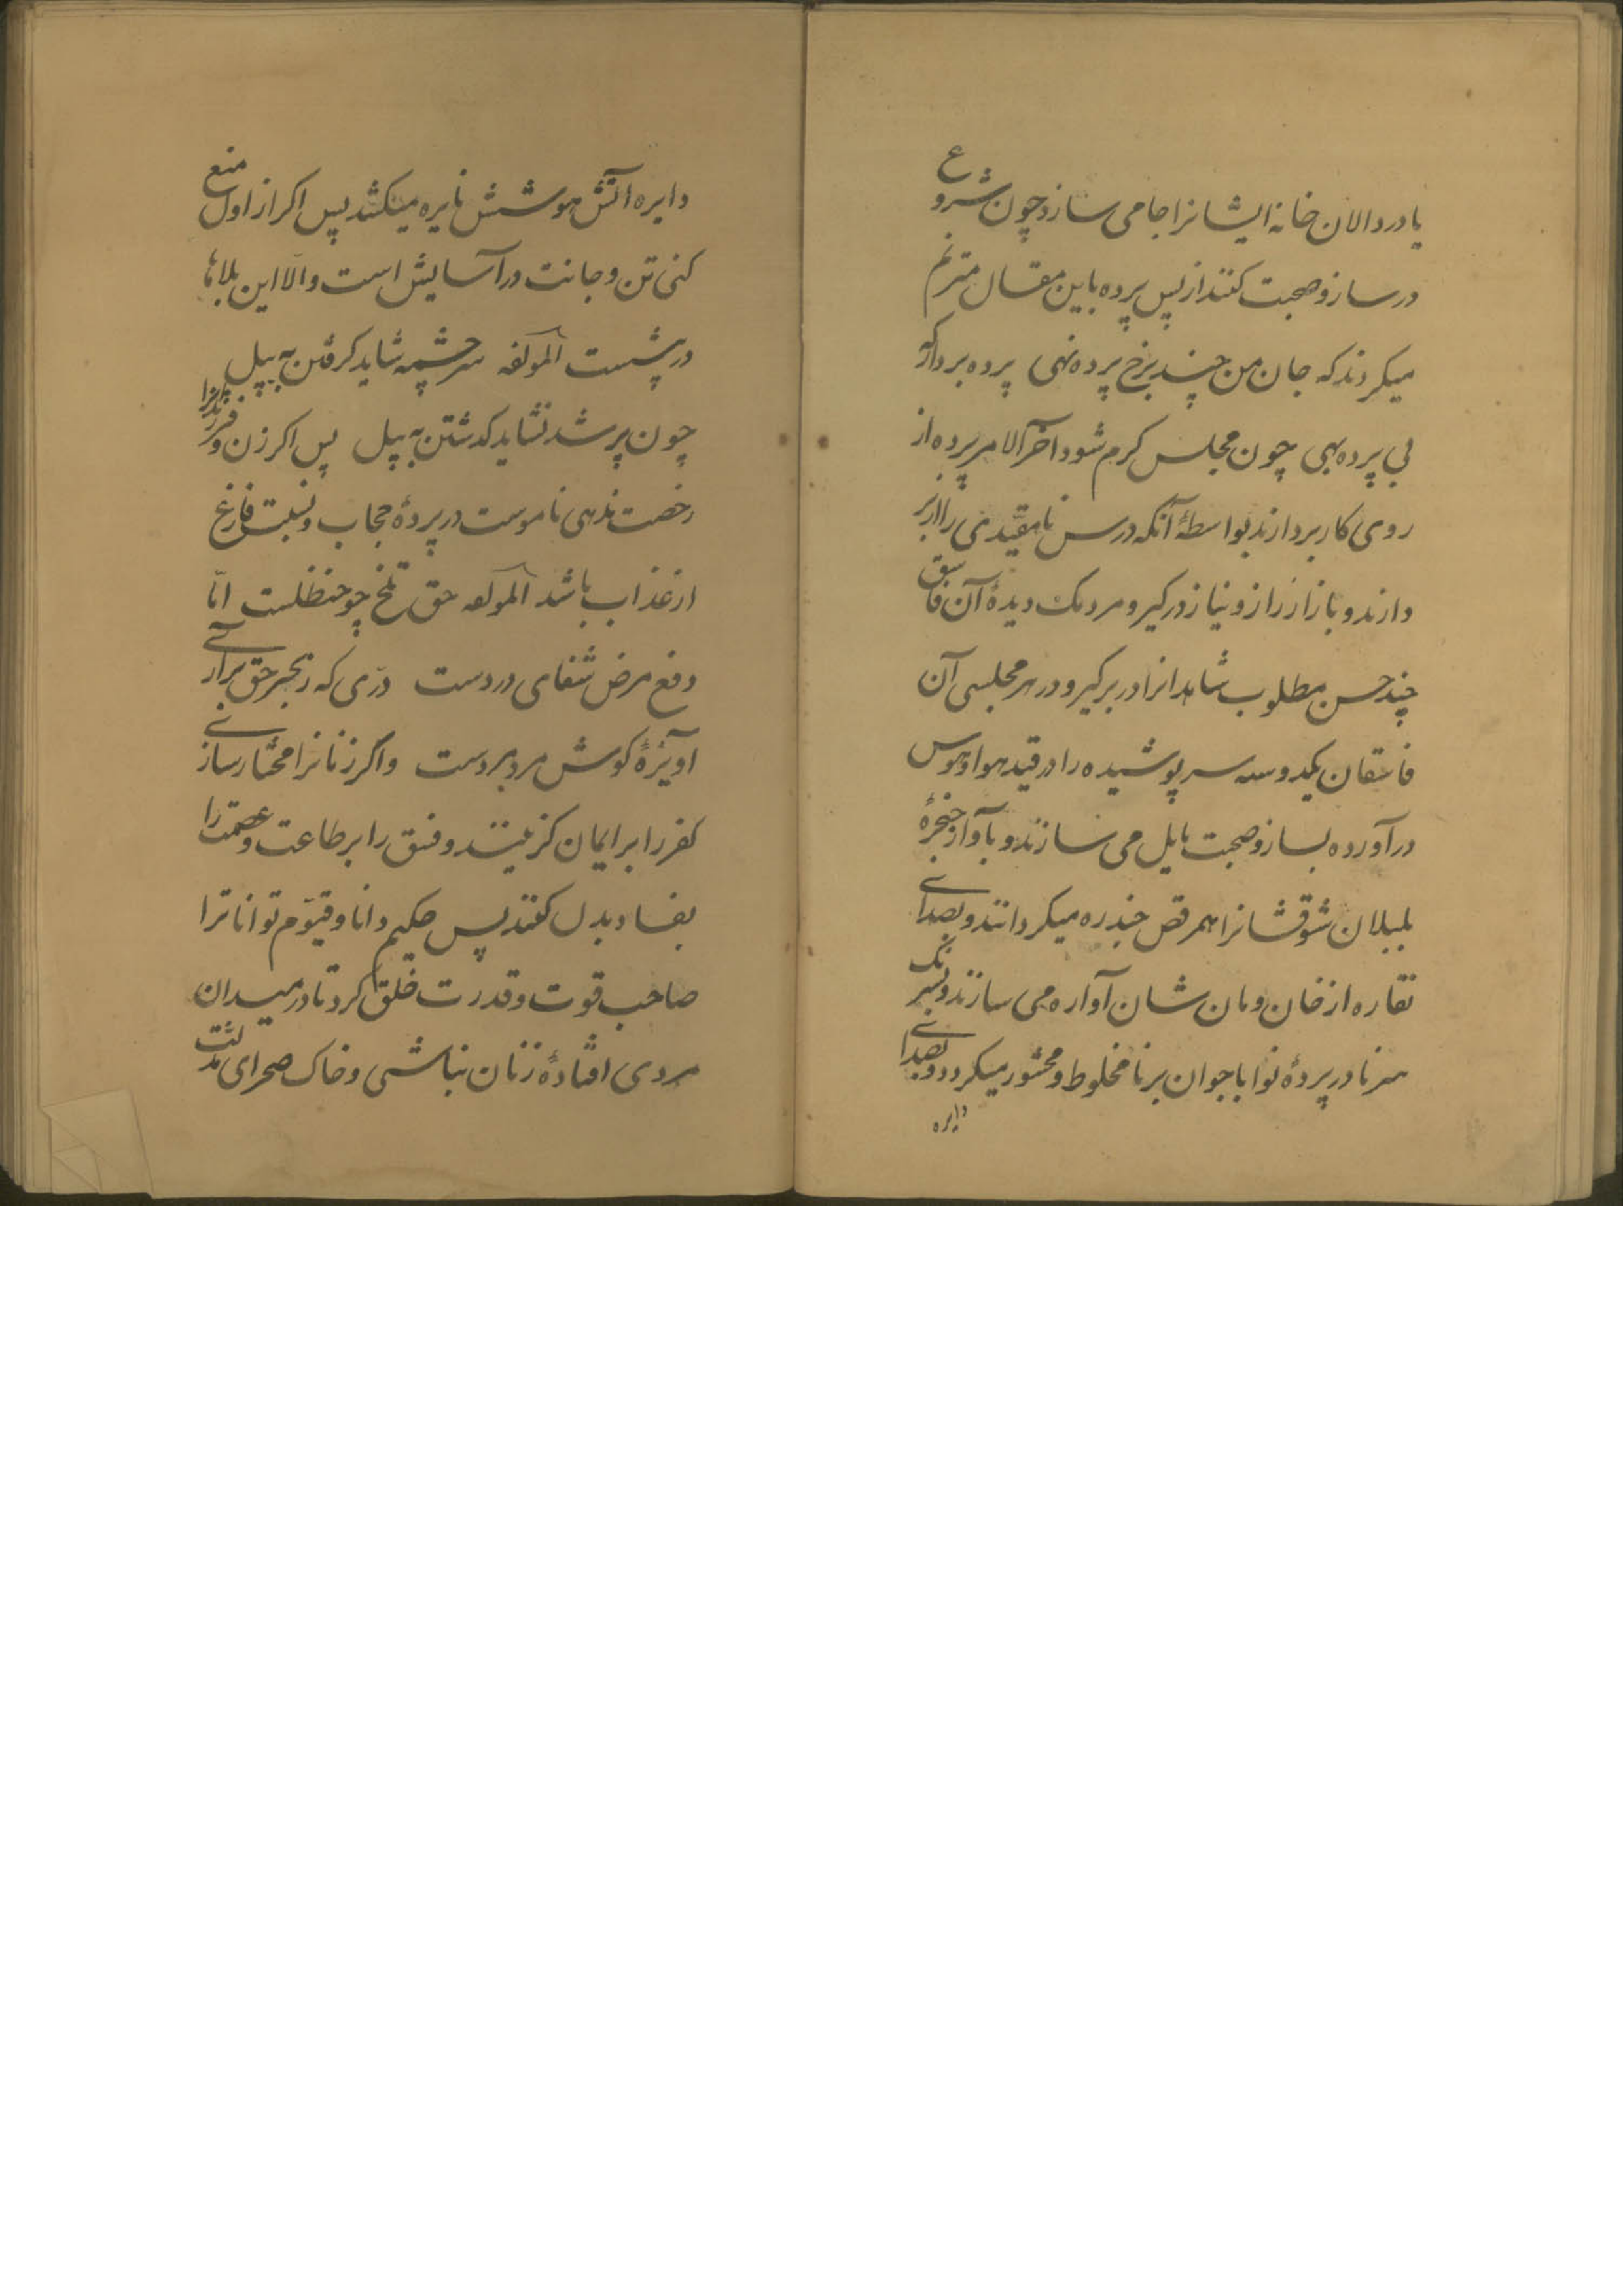 یا در دالان خانه ایشانرا جا می سازد و چون شروع
در ساز و صحبت کنند از پس پرده باین مقال مترنم
میکردند که جان من چند برخ پرده نهی پرده بردار که
بی پرده بهی چون مجلس کرم شود آخر الامر پرده از
روی کار بردارند بواسطهٔ آنکه درس نامقیدی را از بر
دارند و بازار راز و نیاز در کیر و مردمک دیدهٔ آن فاسق
چند حسن مطلوب شاهدانرا در بر کیر و در هر مجلسی آن
فاسقان یکدو سه سر پوشیده را در قید هوا و هوس
در آورده بساز و صحبت مایل می سازند و بآواز حنجرهٔ
بلبلان شوقشانرا همرقص جندره میکردانند و بصدای
نقاره از خان و مان شان آواره می سازند و بسرنک
سرنا در پردهٔ نوا با جوان برنا مخلوط و محشور میکردد و بصدای
دایره
دایره آتش هوشش نایره میکشد پس اکر از اول منع
کنی تن و جانت در آسایش است و الّا این بلاها
در پیشست لمولفه سر چشمه شاید کرفتن به بیل
چون پر شد نشاید کدشتن به پیل پس اکر زن و فرزند را
رخصت ندهی ناموست در پردهٔ حجاب و نسبت فارغ
از عذاب باشد لمولفه حق تلخ چو حنظلست امّا
دفع مرض شفای دردست درّی که ز بحر حق برآری
آویزهٔ کوش مرد مردست و اکر زنانرا مختار سازی
کفر را بر ایمان کزینند و فسق را بر طاعت و عصمت را
بفساد بدل کنند پس حکیم دانا و قیّوم توانا ترا
صاحب قوت و قدرت خلق کرد تا در میدان
مردی افتادهٔ زنان نباشی و خاک صحرای مذلت